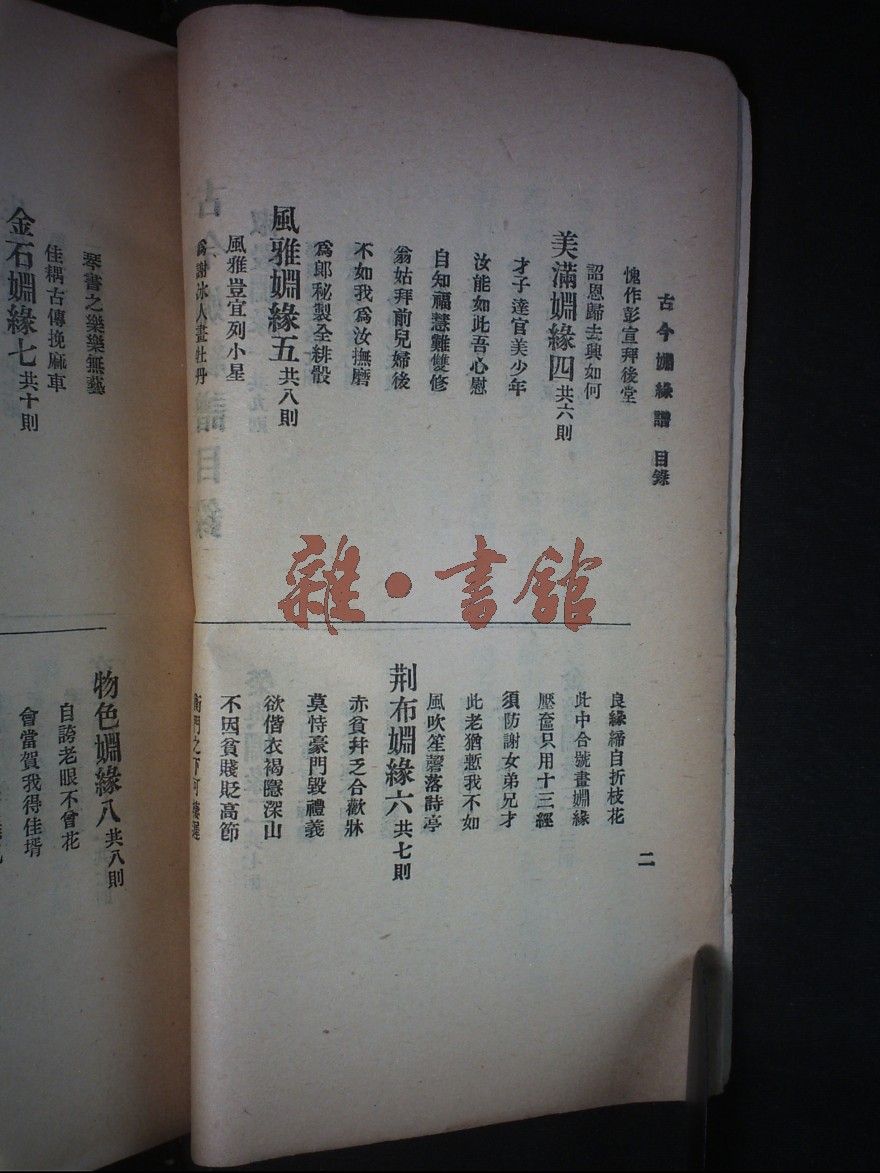 古今婣緣譜 目錄
二
愧作彭宣拜後堂
詔恩歸去興如何
美滿婣緣四 共六則
才子達官美少年
汝能如此吾心慰
自知福慧難雙修
翁姑拜前兒婦後
不如我爲汝撫磨
爲郎秘製全緋骰
風雅婣緣五 共八則
風雅豈宜列小星
爲謝冰人畫牡丹
良緣締自折枝花
此中合號畫婣緣
壓奩只用十三經
須防謝女弟兄才
此老猶慙我不如
風吹笙磬落詩亭
荆布婣緣六 共七則
赤貧幷乏合歡牀
莫恃豪門毀禮義
欲偕衣褐隱深山
不因貧賤貶高節
衡門之下可棲遲
琴書之樂樂無藝
佳耦古傳挽麻車
金石婣緣七 共十則
物色婣緣八 共八則
自誇老眼不曾花
會當賀我得佳壻
雜·書館